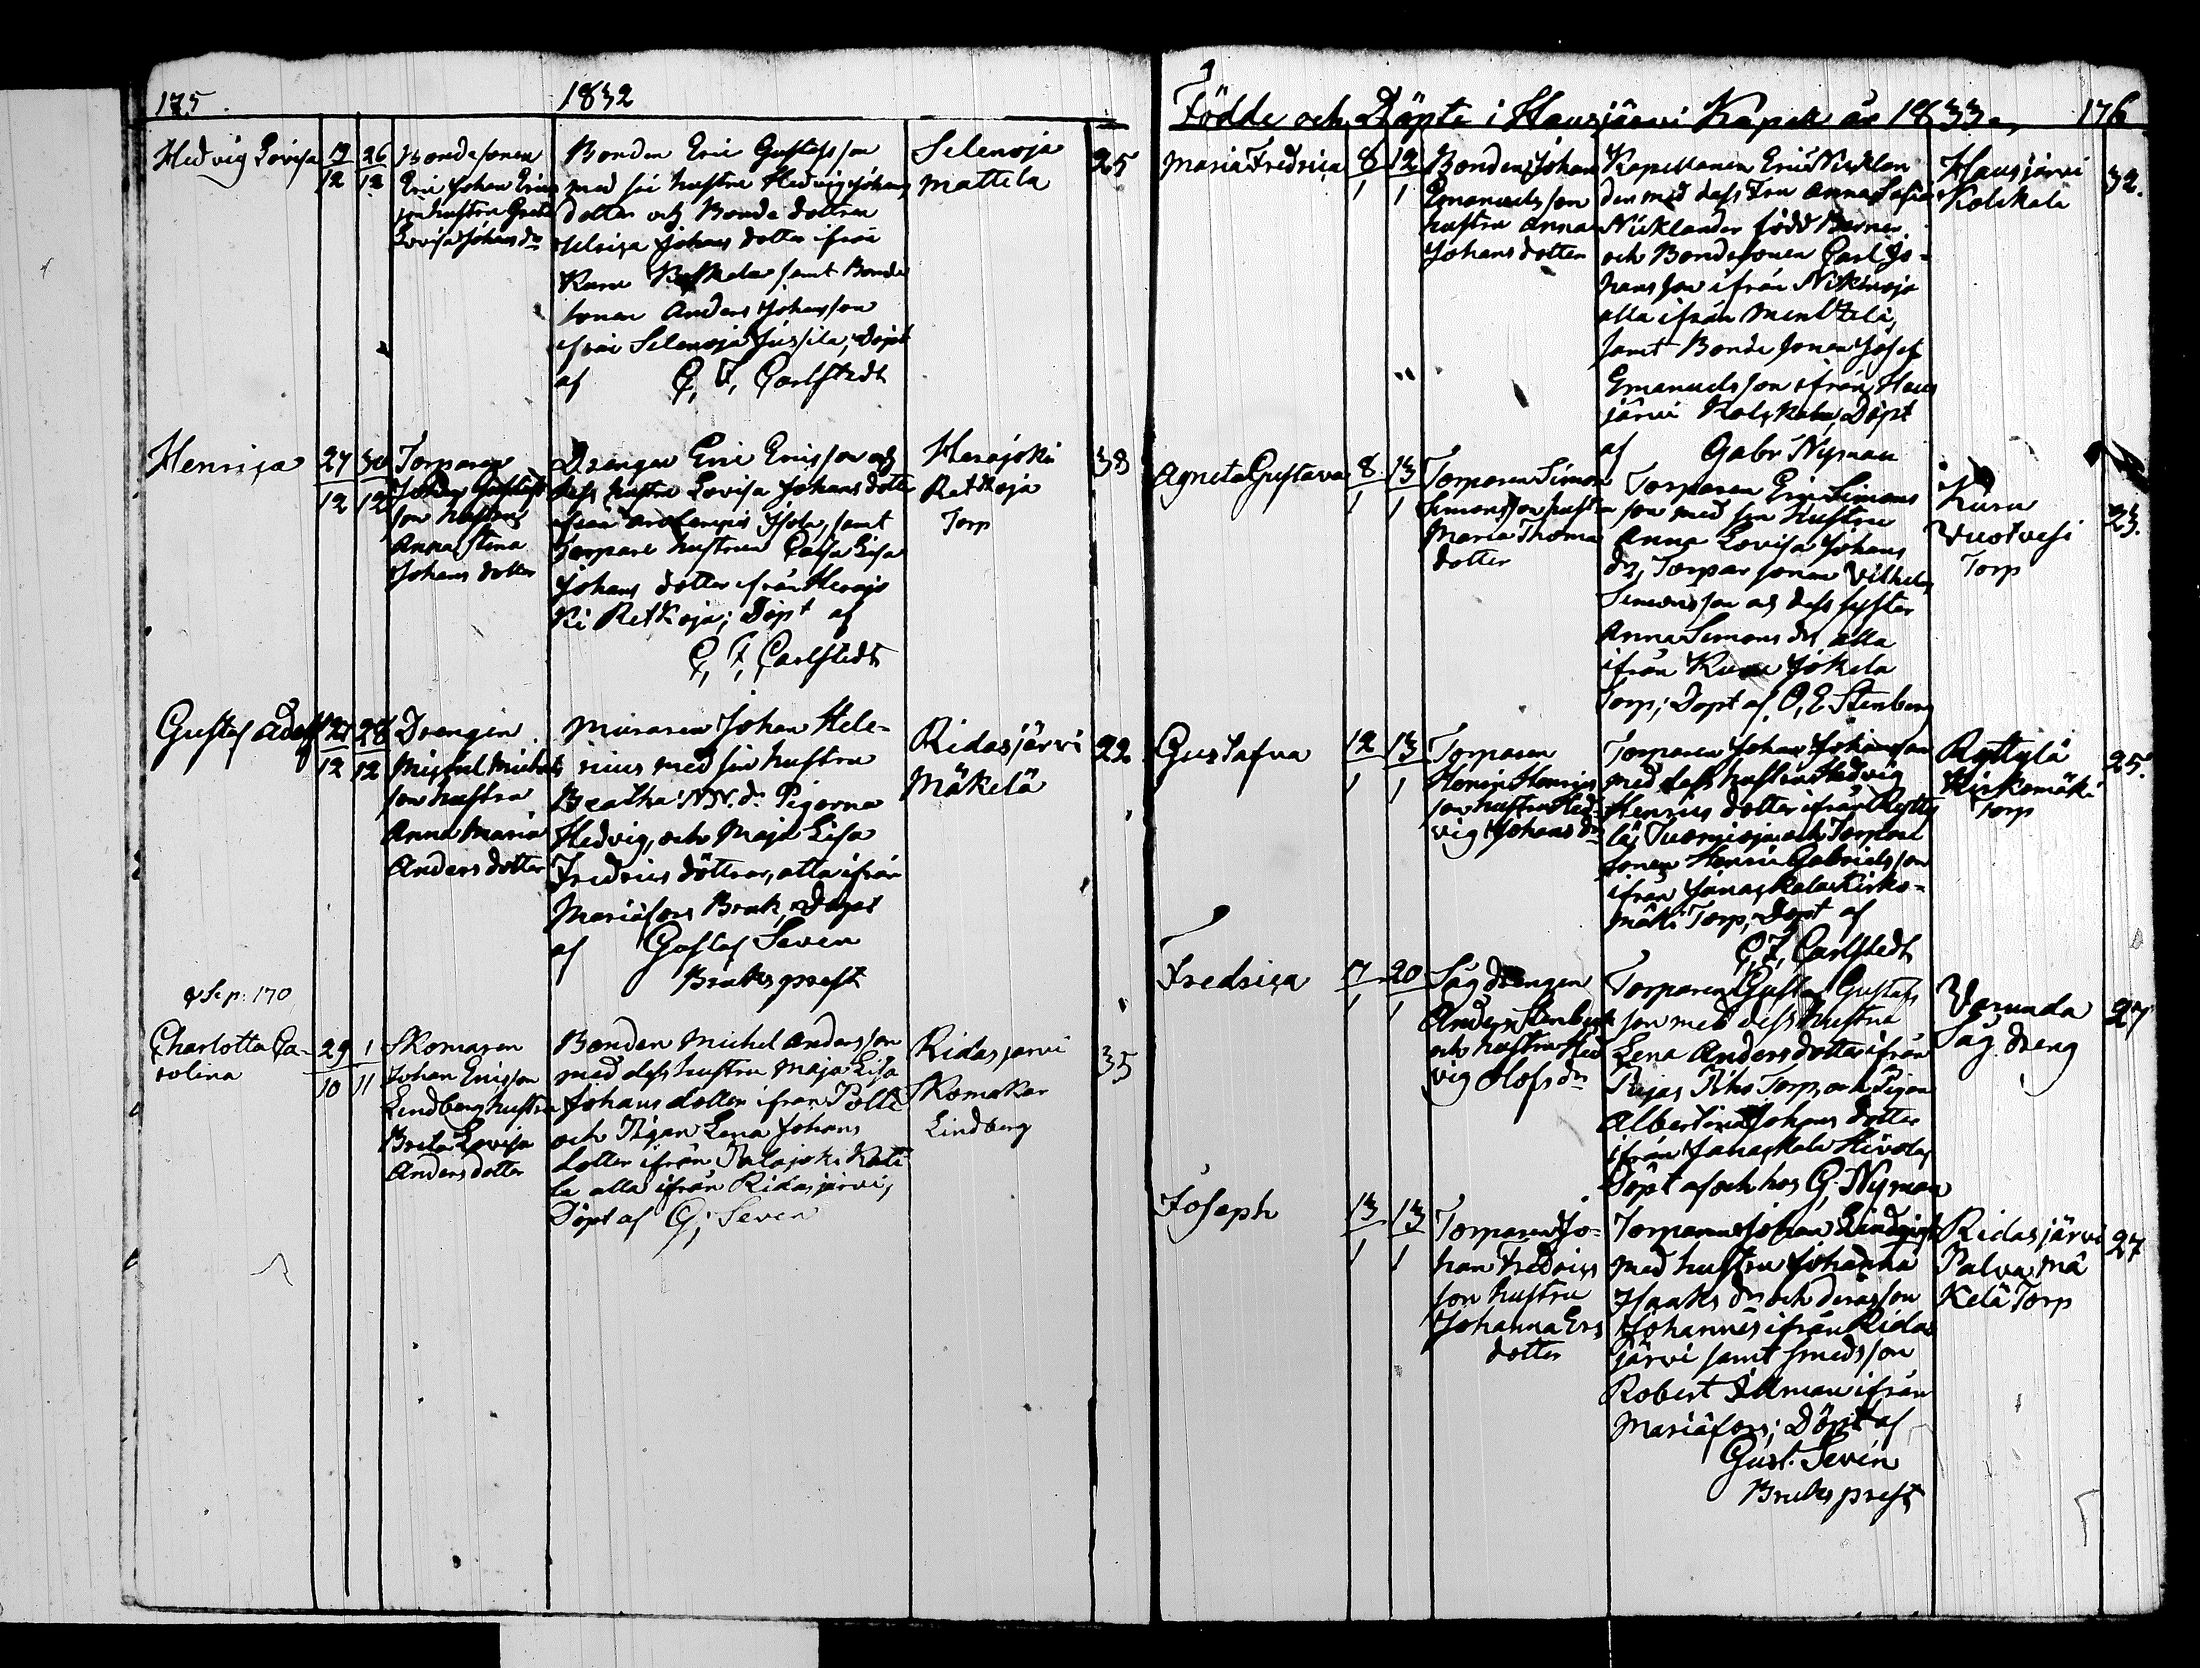 175. 1832
Hedvig Lovisa 19/12 26/12
Bondesonen
Eric Johan Erics
son hustru Greta
Lovisa Johans dr
Bonden Eric Gustafsson
med sin hustru Hedvig Johans
dotter och Bonde dottren
Ulrica Johans dotter ifrån
Kuru samt Bonde
sonen Anders Johansson
ifrån Selenoja Jussila, Döpt
af C. F. Carlstedt
Selenoja
Mattela
25
Henrica 27/12 30/12
Torparen
Johan Gustafs
son hustru
Anna Stina
Johans dotter
Drengen Eric Ericsson och
dess hustru Lovisa Johans dotter
ifrån samt
Torpare hustrun Caisa Lisa
Johans dotter ifrån Herajo
ki Retkoja; Döpt af
C. F. Carlstedt
Herajoki
Retkoja
Torp
38
Gustaf Adolf 27/12 28/12
Drengen
Michel Michels
son hustru
Anna Maria
Anders dotter
Muraren Johan Hele-
nius med sin hustru
Beatha N.N. dr Pigorna
Hedvig, och Maja Lisa
Fredrics döttrar, alla ifrån
Mariäfors Bruk, Döpt
af Gustaf Seven
Bruks prest
Ridasjärvi
Mäkelä
22
Sep. 170
Charlotta Ca-
rolina
29/10 1/11
Skomaren
Johan Ericsson
Lindberg hustru
Brita Lovisa
Anders dotter
Bonden Michel Andersson
med dess hustru Maja Lisa
Johans dotter ifrån Pölli
och Pigan Lena Johans
dotter ifrån Palajoki Kati
la alla ifrån Ridasjärvi,
Döpt af G. Seven
Ridasjarvi
Skomakar
Lindberg
35
Födde och Döpte i Hausjärvi Kapell år 1833. 176
Maria Fredrica 8/1 12/1
Bonden Johan
Emanuelsson
hustru Anna
Johans dotter
Kapellanen Eric Nicklan
der med dess Fru Anna Sofia
Nicklander född Barner
och Bondesonen Carl Jo-
hansson ifrån Nikinoja
alla ifrån Menttilä,
samt Bonde sonen Josef
Emanuelsson ifrån Haus
järvi Kolskala, Döpt
af Gabr Nyman
Hausjärvi
Kolskala
32.
Agneta Gustava 8/1 13/1
Torparen Simon
Simonsson hustru
Maria Thomas
dotter
Torparen Eric Simons
son med sin hustru
Anna Lovisa Johans
dr, Torpar sonen Vilhelm
Simonsson och dess syster
Anna Simons dr alla
ifrån Kuru Jokela
Torp; Döpt af O. E. Stenberg
Kuru
Vuotvesi
Torp
23.
Gustafva 12/1 13/1
Torparen
Henric Henrics
son hustru Hed-
vig Johans dr
Torparen Johan Johansson
med dess hustru Hedvig
Henrics dotter ifrån Rytty
lä, och Torpare
sonen Henric Gabrielsson
ifrån Janackala Kirko-
mäki Torp; Döpt af
C. F. Carlstedt
Ryttylä
Kirkomäki
Torp
25.
Fredrica 17/1 20/1
Såg drengen
Anders Stenbeck
och hustru Hed
vig Olofs dr
Torparen Gustav Gustafs
son med dess hustru
Lena Anders dotter ifrån
Torp, och Pigan
Albertina Johans dotter
ifrån Janackala Hivola,
Döpt af och hos G. Nyman
Varunda
Såg dreng
27
Joseph 13/1 13/1
Torparen Jo-
han Fredrics
son hustru
Johanna Ers
dotter
Torparen Johan Lindqvist
med hustru Johanna
Isaks dr och deras son
Johannes ifrån Ridas
järvi samt smedsson
Robert Ullman ifrån
Mariäfors; Döpt af
Gust. Sevén
Bruks prest
Ridasjärvi
Palva Mä
kelä Torp
27